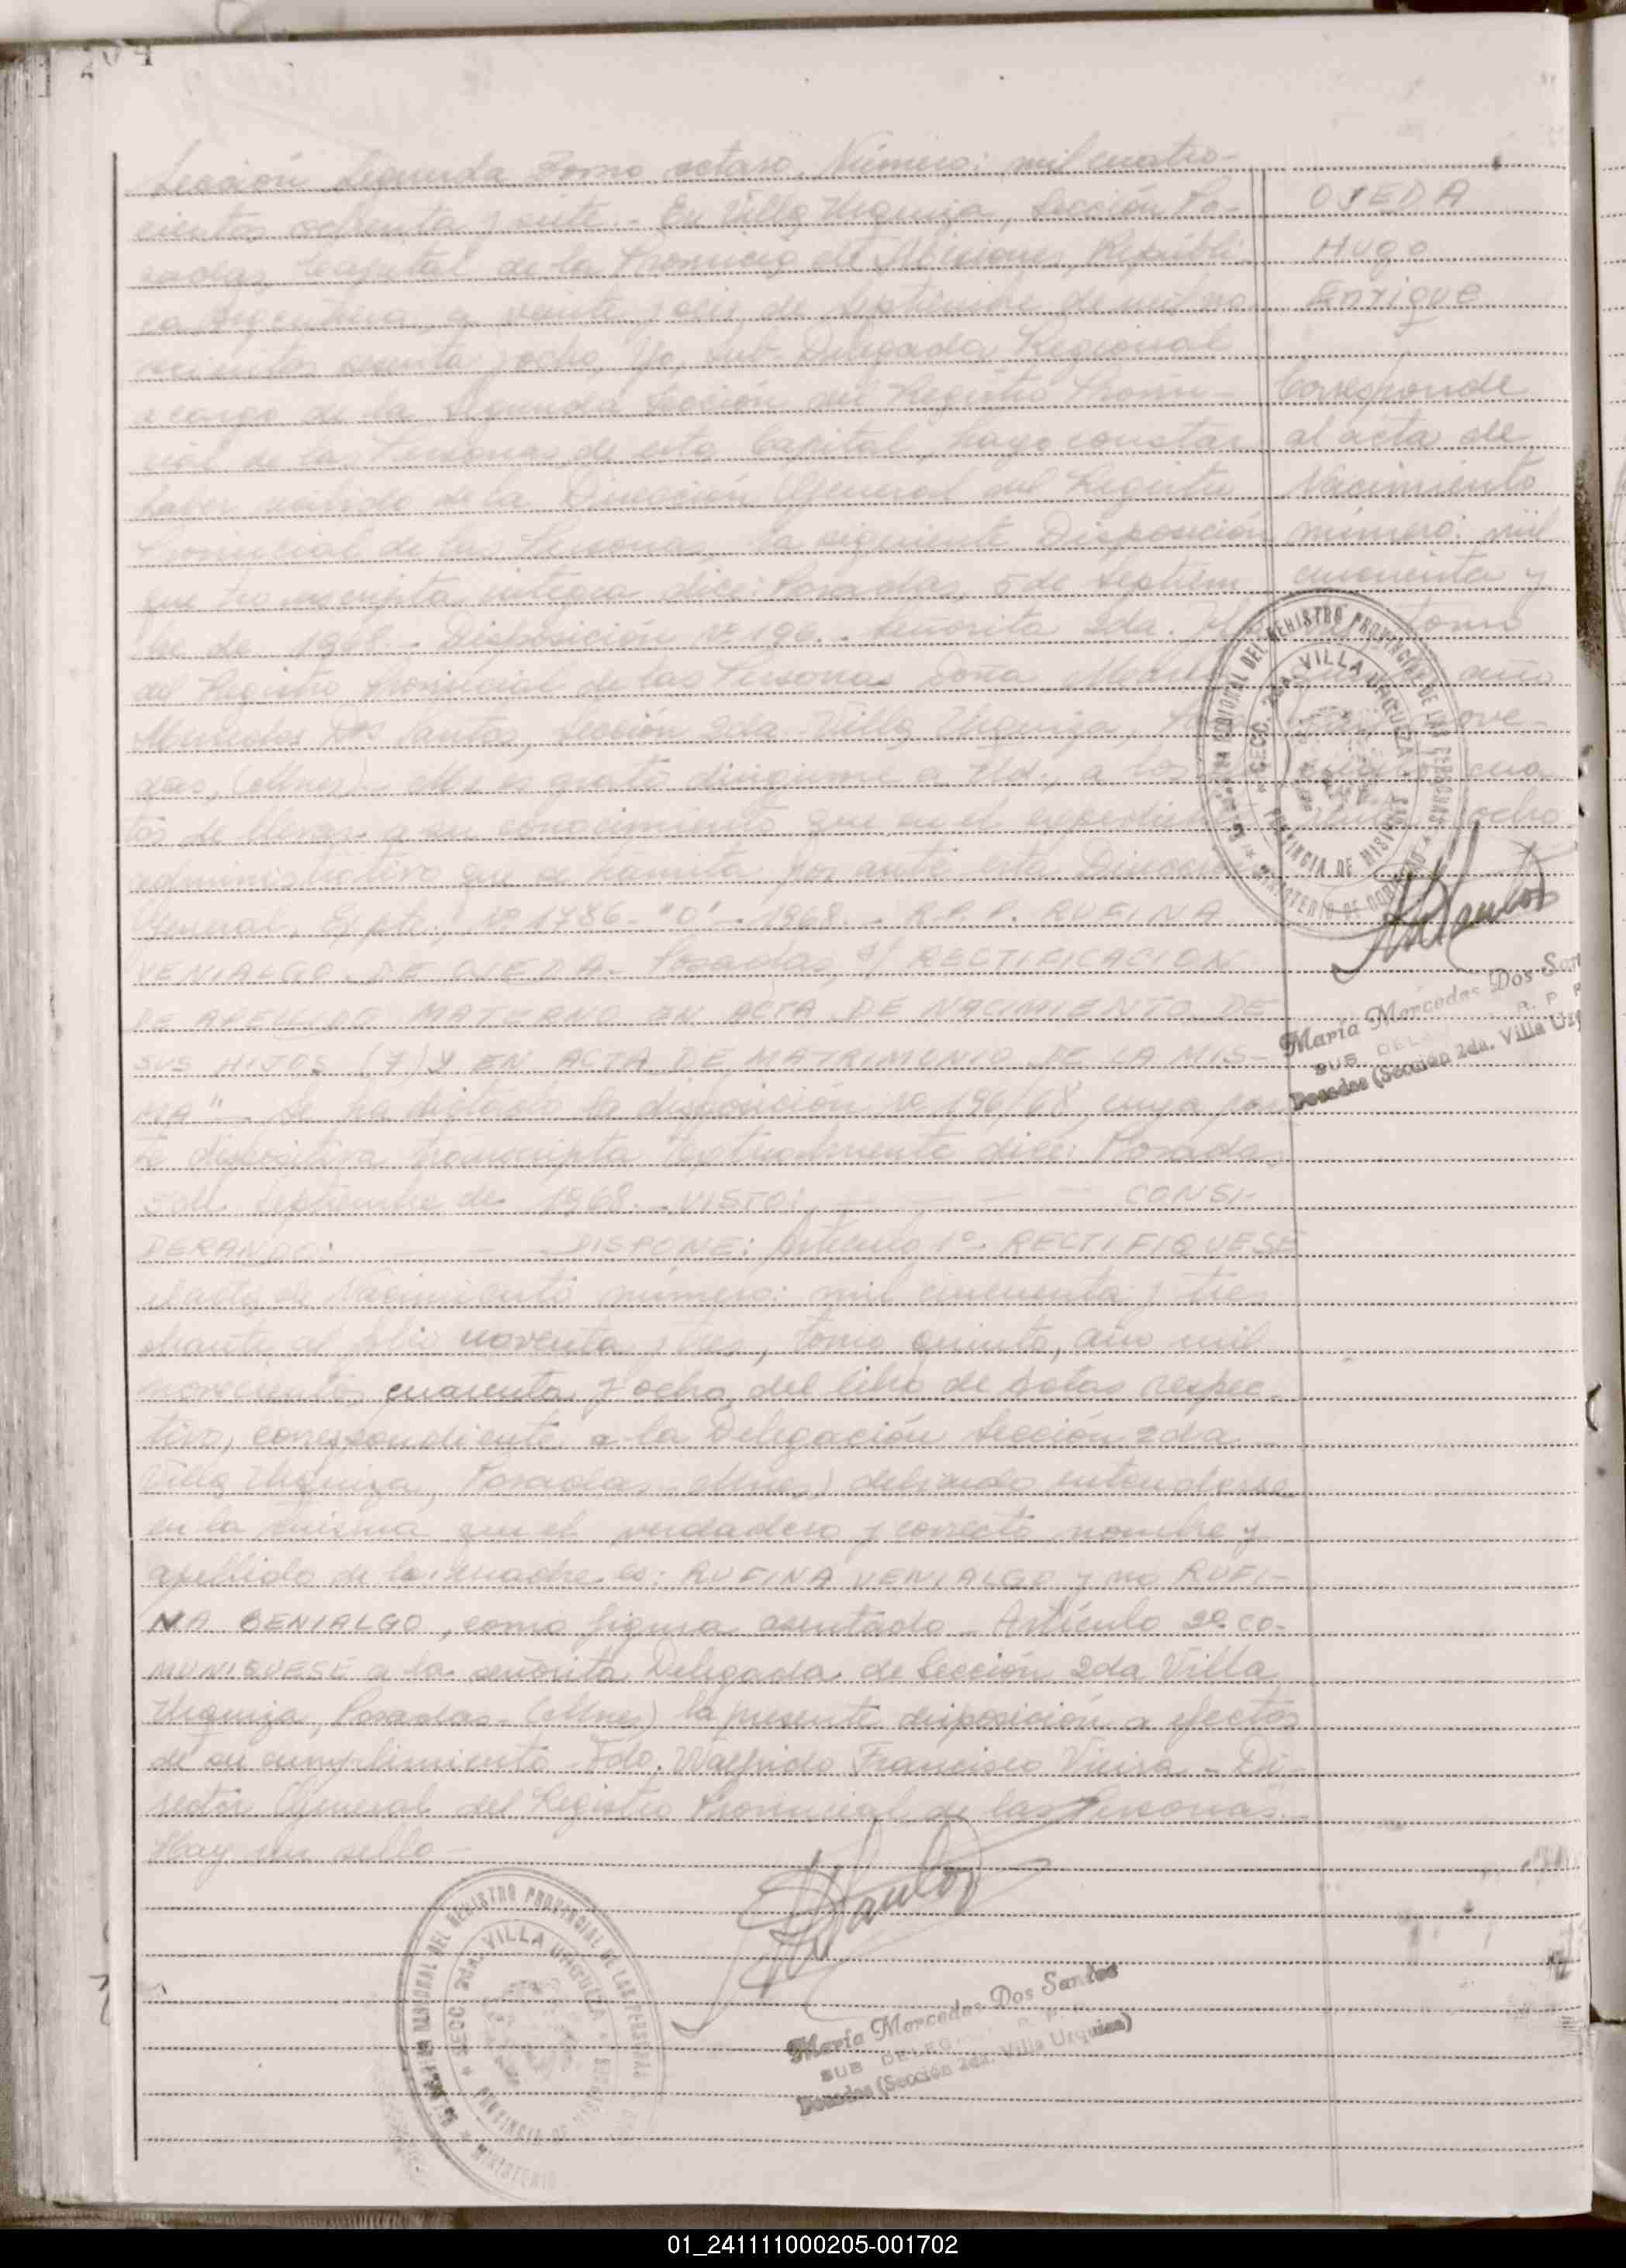 204
Sección Segunda Tomo octavo. Número: mil cuatro-
cientos ochenta y siete.- En Villa Urquiza, Sección Po-
sadas, Capital de la Provincia de Misiones, Repúbli-
ca Argentina, a veinte y seis de Septiembre de mil no-
vecientos sesenta y ocho, Yo, Sub-Delegada Regional
a cargo de la Segunda Sección del Registro Provin-
cial de las Personas de esta Capital, hago constar
haber recibido de la Dirección General del Registro
Provincial de las Personas, la siguiente Disposición
que transcripta íntegra dice: Posadas, 5 de Septiem
bre de 1968.- Disposición Nº 196.- Señorita 2da.
del Registro Provincial de las Personas Doña
Mercedes Dos Santos, Sección 2da. Villa Urquiza,
das, (Mnes).- Me es grato dirigirme a Ud., a los
tos de llevar a su conocimiento que en el expediente
administrativo que se tramita por ante esta Dirección
General, Expte. Nº 1786-"O"-1968.- R.P.P. RUFINA
VENIALGO DE OJEDA- Posadas, s/ RECTIFICACION
DE APELLIDO MATERNO EN ACTA DE NACIMIENTO DE
SUS HIJOS (7) Y EN ACTA DE MATRIMONIO DE LA MIS-
MA"- Se ha dictado la disposición Nº 196/68, cuya par
te dispositiva transcripta textualmente dice: Posadas
5 de Septiembre de 1968.- VISTO: - - - - CONSI-
DERANDO: - - - DISPONE: Artículo 1º- RECTIFIQUESE
el acta de Nacimiento número: mil cincuenta y tres
obrante al folio noventa y tres, tomo quinto, año mil
novecientos cuarenta y ocho, del libro de actas respec-
tivo, correspondiente a la Delegación Sección 2da
Villa Urquiza, Posadas- Mnes) debiendo entenderse
en la misma que el verdadero y correcto nombre y
apellido de la madre es: RUFINA VENIALGO y no RUFI-
NA BENIALGO, como figura asentado- Artículo 2º CO-
MUNIQUESE a la señorita Delegada de Sección 2da Villa
Urquiza, Posadas- (Mnes) la presente disposición a efectos
de su cumplimiento- Fdo. Walfrido Francisco Vieira - Di-
rector General del Registro Provincial de las Personas.-
Hay un sello-
OJEDA
Hugo
Enrique
Corresponde
al acta de
Nacimiento
número: mil
cincuenta y
tomo
año
nove-
cua
ocho
REGISTRO PROVINCIAL DE LAS PERSONAS
SECC. 2da. VILLA URQUIZA
PROVINCIA DE MISIONES
MDSantos
María Mercedes Dos San
SUB DELE
R. P. P
Posadas (Sección 2da. Villa Urq
REGISTRO PROVINCIAL DE LAS PERSONAS
SECC. 2da. VILLA URQUIZA
PROVINCIA DE
MINISTERIO
MDSantos
María Mercedes Dos Santos
SUB DELEG
Posadas (Sección 2da. Villa Urquiza)
01_241111000205-001702